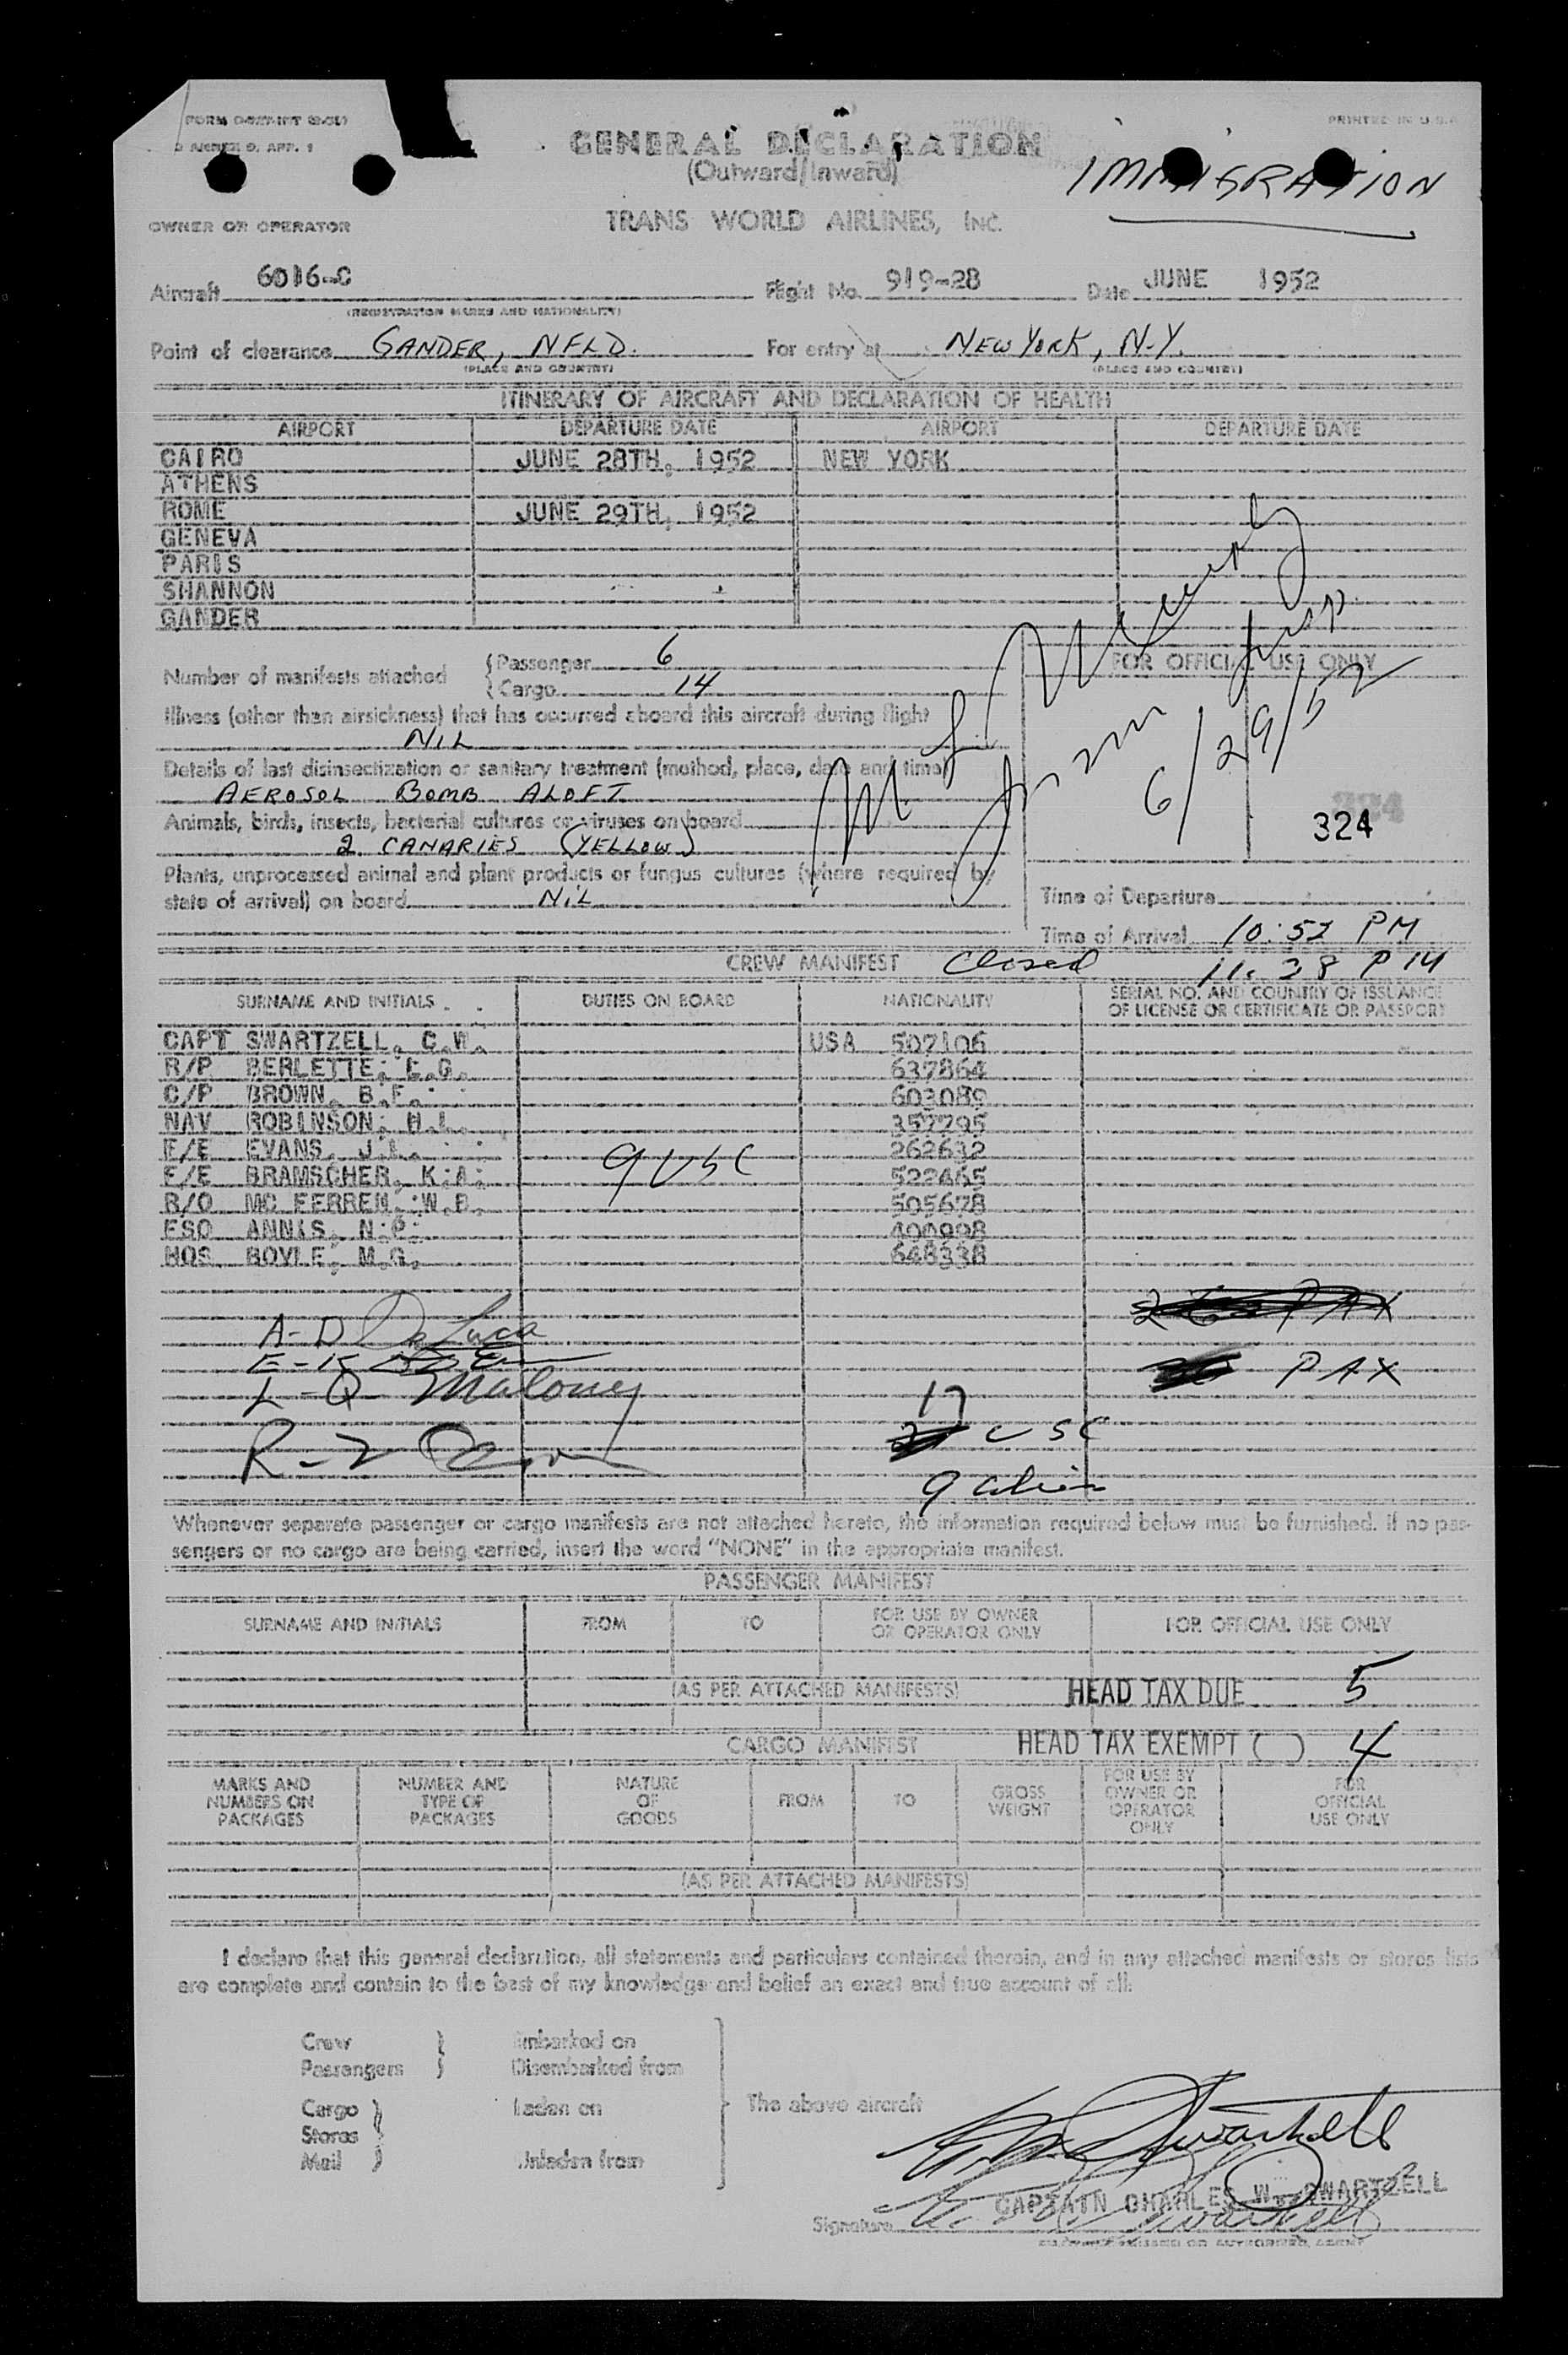 GENERAL DECLARATION
PRINTED IN U.S.A.
(Outward/Inward)
IMMIGRATION
OWNER OR OPERATOR TRANS WORLD AIRLINES, INC.
Aircraft 6016-C Flight No. 919-28 Date JUNE 1952
(REGISTRATION MARKS AND NATIONALITY)
Point of clearance GANDER, NFLD. For entry at NEW YORK, N.Y.
(PLACE AND COUNTRY) (PLACE AND COUNTRY)
ITINERARY OF AIRCRAFT AND DECLARATION OF HEALTH
AIRPORT DEPARTURE DATE AIRPORT DEPARTURE DATE
CAIRO JUNE 28TH, 1952 NEW YORK
ATHENS
ROME JUNE 29TH, 1952
GENEVA
PARIS
SHANNON
GANDER
Number of manifests attached Passenger 6
Cargo 14
FOR OFFICIAL USE ONLY
Illness (other than airsickness) that has occurred aboard this aircraft during flight
NIL
Details of last disinsectization or sanitary treatment (method, place, date and time)
AEROSOL BOMB ALOFT
6/29/52
324
Animals, birds, insects, bacterial cultures or viruses on board
2 CANARIES (YELLOW)
Plants, unprocessed animal and plant products or fungus cultures (where required by
state of arrival) on board NIL
Time of Departure
Time of Arrival 10:52 PM
CREW MANIFEST Closed 11.28 PM
SURNAME AND INITIALS DUTIES ON BOARD NATIONALITY SERIAL NO. AND COUNTRY OF ISSUANCE
OF LICENSE OR CERTIFICATE OR PASSPORT
CAPT SWARTZELL, C.W. USA 507106
R/P BERLETTE, E.G. 637864
C/P BROWN, B.F. 603089
NAV ROBINSON, H.L. 357795
F/E EVANS, J.L. 262632
F/E BRAMSCHER, K.A. 522465
9 USC
R/O MC FERREN, W.B. 505678
FSO ANNIS, N.P. 400998
HOS BOYLE, M.G. 648338
PAX
A-D De Luca
PAX
L-Q Maloney
17
USC
R-Z
9 alien
Whenever separate passenger or cargo manifests are not attached hereto, the information required below must be furnished. If no pas-
sengers or no cargo are being carried, insert the word "NONE" in the appropriate manifest.
PASSENGER MANIFEST
SURNAME AND INITIALS FROM TO FOR USE BY OWNER OR OPERATOR ONLY FOR OFFICIAL USE ONLY
(AS PER ATTACHED MANIFESTS) HEAD TAX DUE 5
CARGO MANIFEST HEAD TAX EXEMPT ( ) 4
MARKS AND NUMBERS ON PACKAGES NUMBER AND TYPE OF PACKAGES NATURE OF GOODS FROM TO GROSS WEIGHT FOR USE BY OWNER OR OPERATOR ONLY FOR OFFICIAL USE ONLY
(AS PER ATTACHED MANIFESTS)
I declare that this general declaration, all statements and particulars contained therein, and in any attached manifests or stores lists
are complete and contain to the best of my knowledge and belief an exact and true account of all:
Crew Embarked on
Passengers Disembarked from
Cargo Laden on The above aircraft
Stores
Mail Unladen from
CAPTAIN CHARLES W. SWARTZELL
Signature